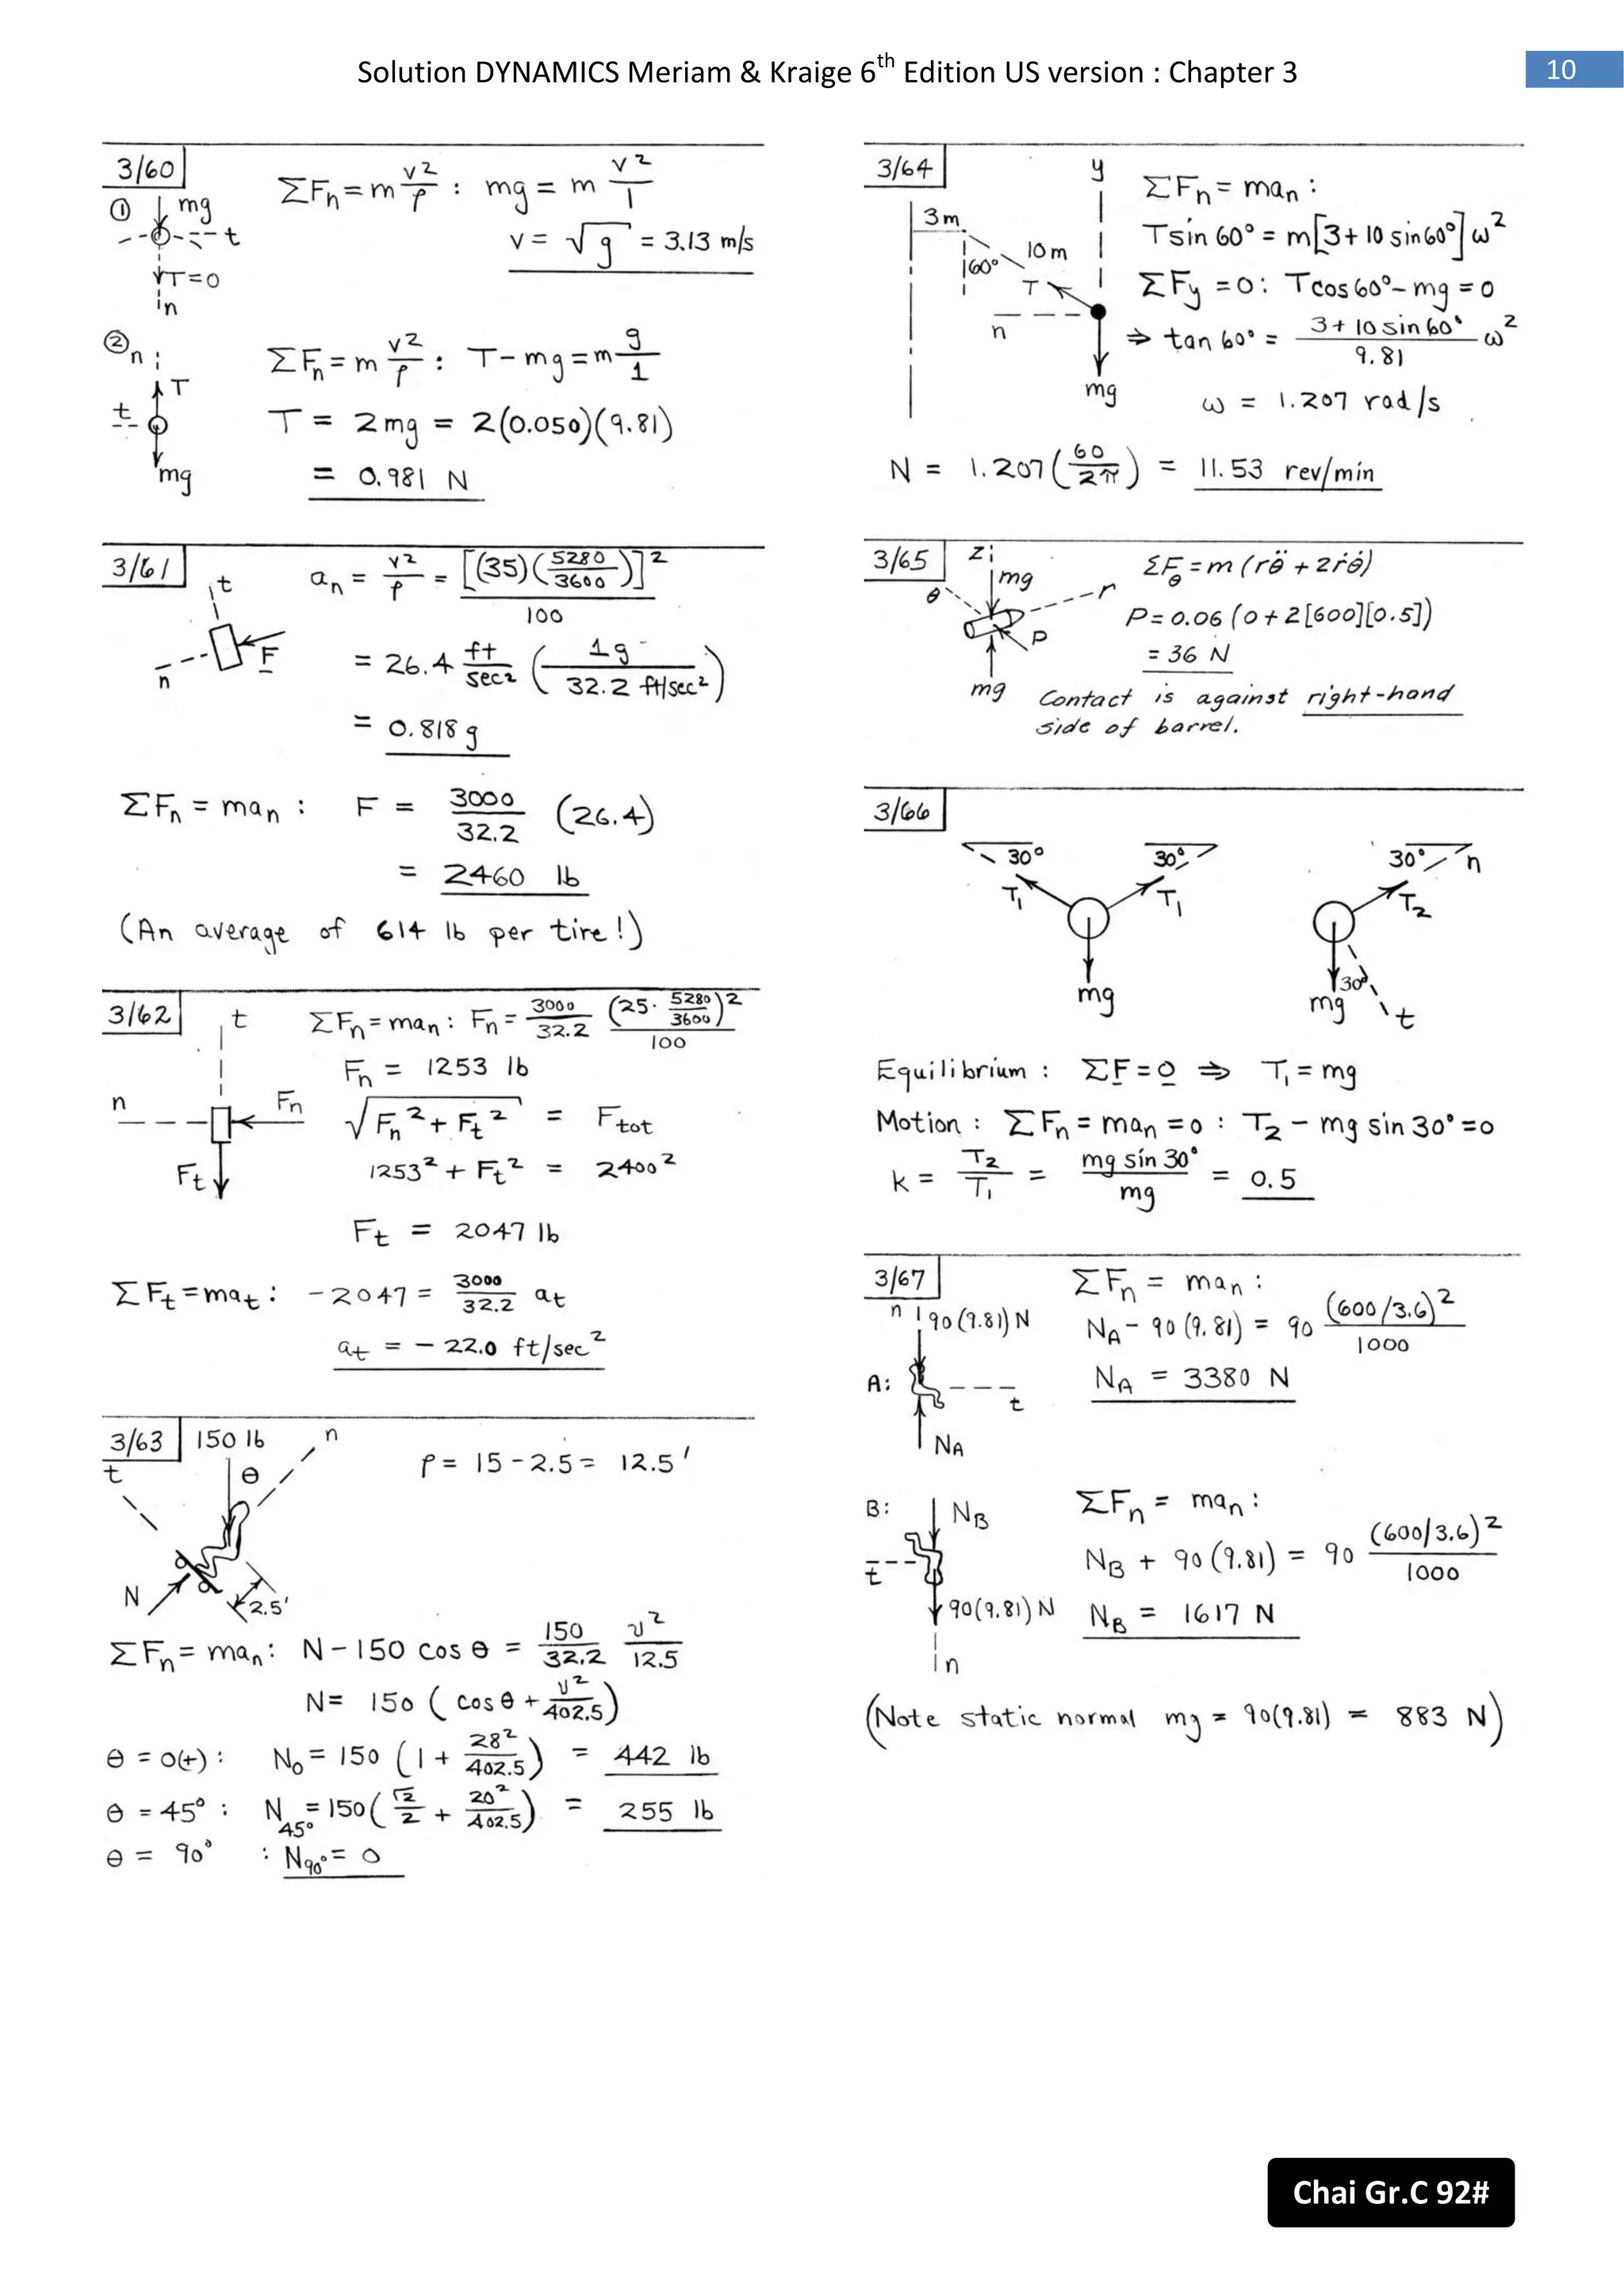 Solution DYNAMICS Meriam & Kraige 6th Edition US version : Chapter 3
10
3/60
① mg
t
T=0
n
ΣFn = m v²/ρ : mg = m v²/1
v = √g = 3.13 m/s
② n
T
t
mg
ΣFn = m v²/ρ : T - mg = m g/1
T = 2mg = 2(0.050)(9.81)
= 0.981 N
3/61
t
F
n
an = v²/ρ = [(35)(5280/3600)]²/100
= 26.4 ft/sec² (1g / 32.2 ft/sec²)
= 0.818 g
ΣFn = man : F = 3000/32.2 (26.4)
= 2460 lb
(An average of 614 lb per tire!)
3/62
t
n
Fn
Ft
ΣFn = man : Fn = 3000/32.2 (25 · 5280/3600)²/100
Fn = 1253 lb
√Fn² + Ft² = Ftot
1253² + Ft² = 2400²
Ft = 2047 lb
ΣFt = mat : -2047 = 3000/32.2 at
at = - 22.0 ft/sec²
3/63
150 lb
n
t
θ
N
2.5'
ρ = 15 - 2.5 = 12.5'
ΣFn = man : N - 150 cos θ = 150/32.2 v²/12.5
N = 150 (cos θ + v²/402.5)
θ = 0(+) : N0 = 150 (1 + 28²/402.5) = 442 lb
θ = 45° : N45° = 150(√2/2 + 20²/402.5) = 255 lb
θ = 90° : N90° = 0
3/64
y
3 m
60°
10 m
T
n
mg
ΣFn = man :
T sin 60° = m[3 + 10 sin 60°] ω²
ΣFy = 0 : T cos 60° - mg = 0
⇒ tan 60° = 3 + 10 sin 60°/9.81 ω²
ω = 1.207 rad/s
N = 1.207 (60/2π) = 11.53 rev/min
3/65
z
mg
θ
r
P
mg
ΣFθ = m (rθ̈ + 2ṙθ̇)
P = 0.06 (0 + 2[600][0.5])
= 36 N
Contact is against right-hand
side of barrel.
3/66
30° 30° 30° n
T1 T1 T2
mg mg 30° t
Equilibrium : ΣF = 0 ⇒ T1 = mg
Motion : ΣFn = man = 0 : T2 - mg sin 30° = 0
k = T2/T1 = mg sin 30°/mg = 0.5
3/67
n 90(9.81) N
A:
t
NA
ΣFn = man :
NA - 90 (9.81) = 90 (600/3.6)²/1000
NA = 3380 N
B:
NB
t
90(9.81) N
n
ΣFn = man :
NB + 90 (9.81) = 90 (600/3.6)²/1000
NB = 1617 N
(Note static normal mg = 90(9.81) = 883 N)
Chai Gr.C 92#